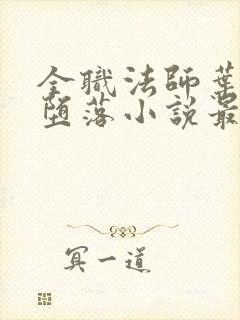 全職法師葉
墮落小說最
冥一道